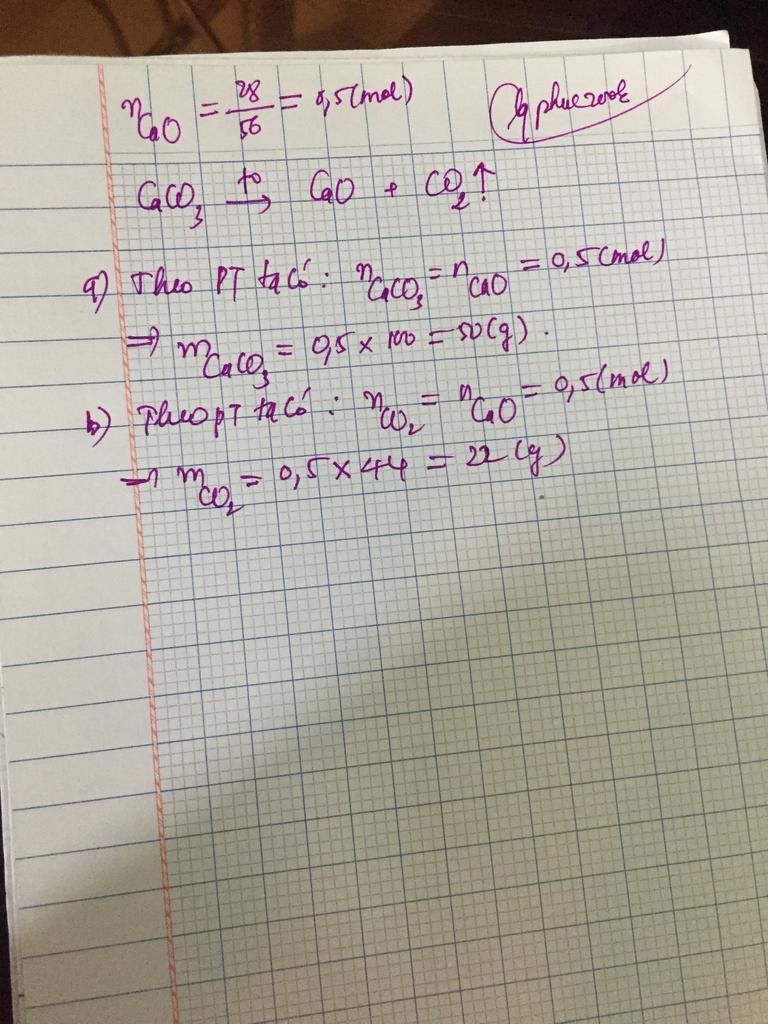 nCaO = 28/56 = 0,5(mol)
CaCO3 to→ CaO + CO2↑
a) Theo PT ta có: nCaCO3 = nCaO = 0,5(mol)
⇒ mCaCO3 = 0,5 × 100 = 50(g).
b) Theo pT ta có: nCO2 = nCaO = 0,5(mol)
→ mCO2 = 0,5 × 44 = 22(g)